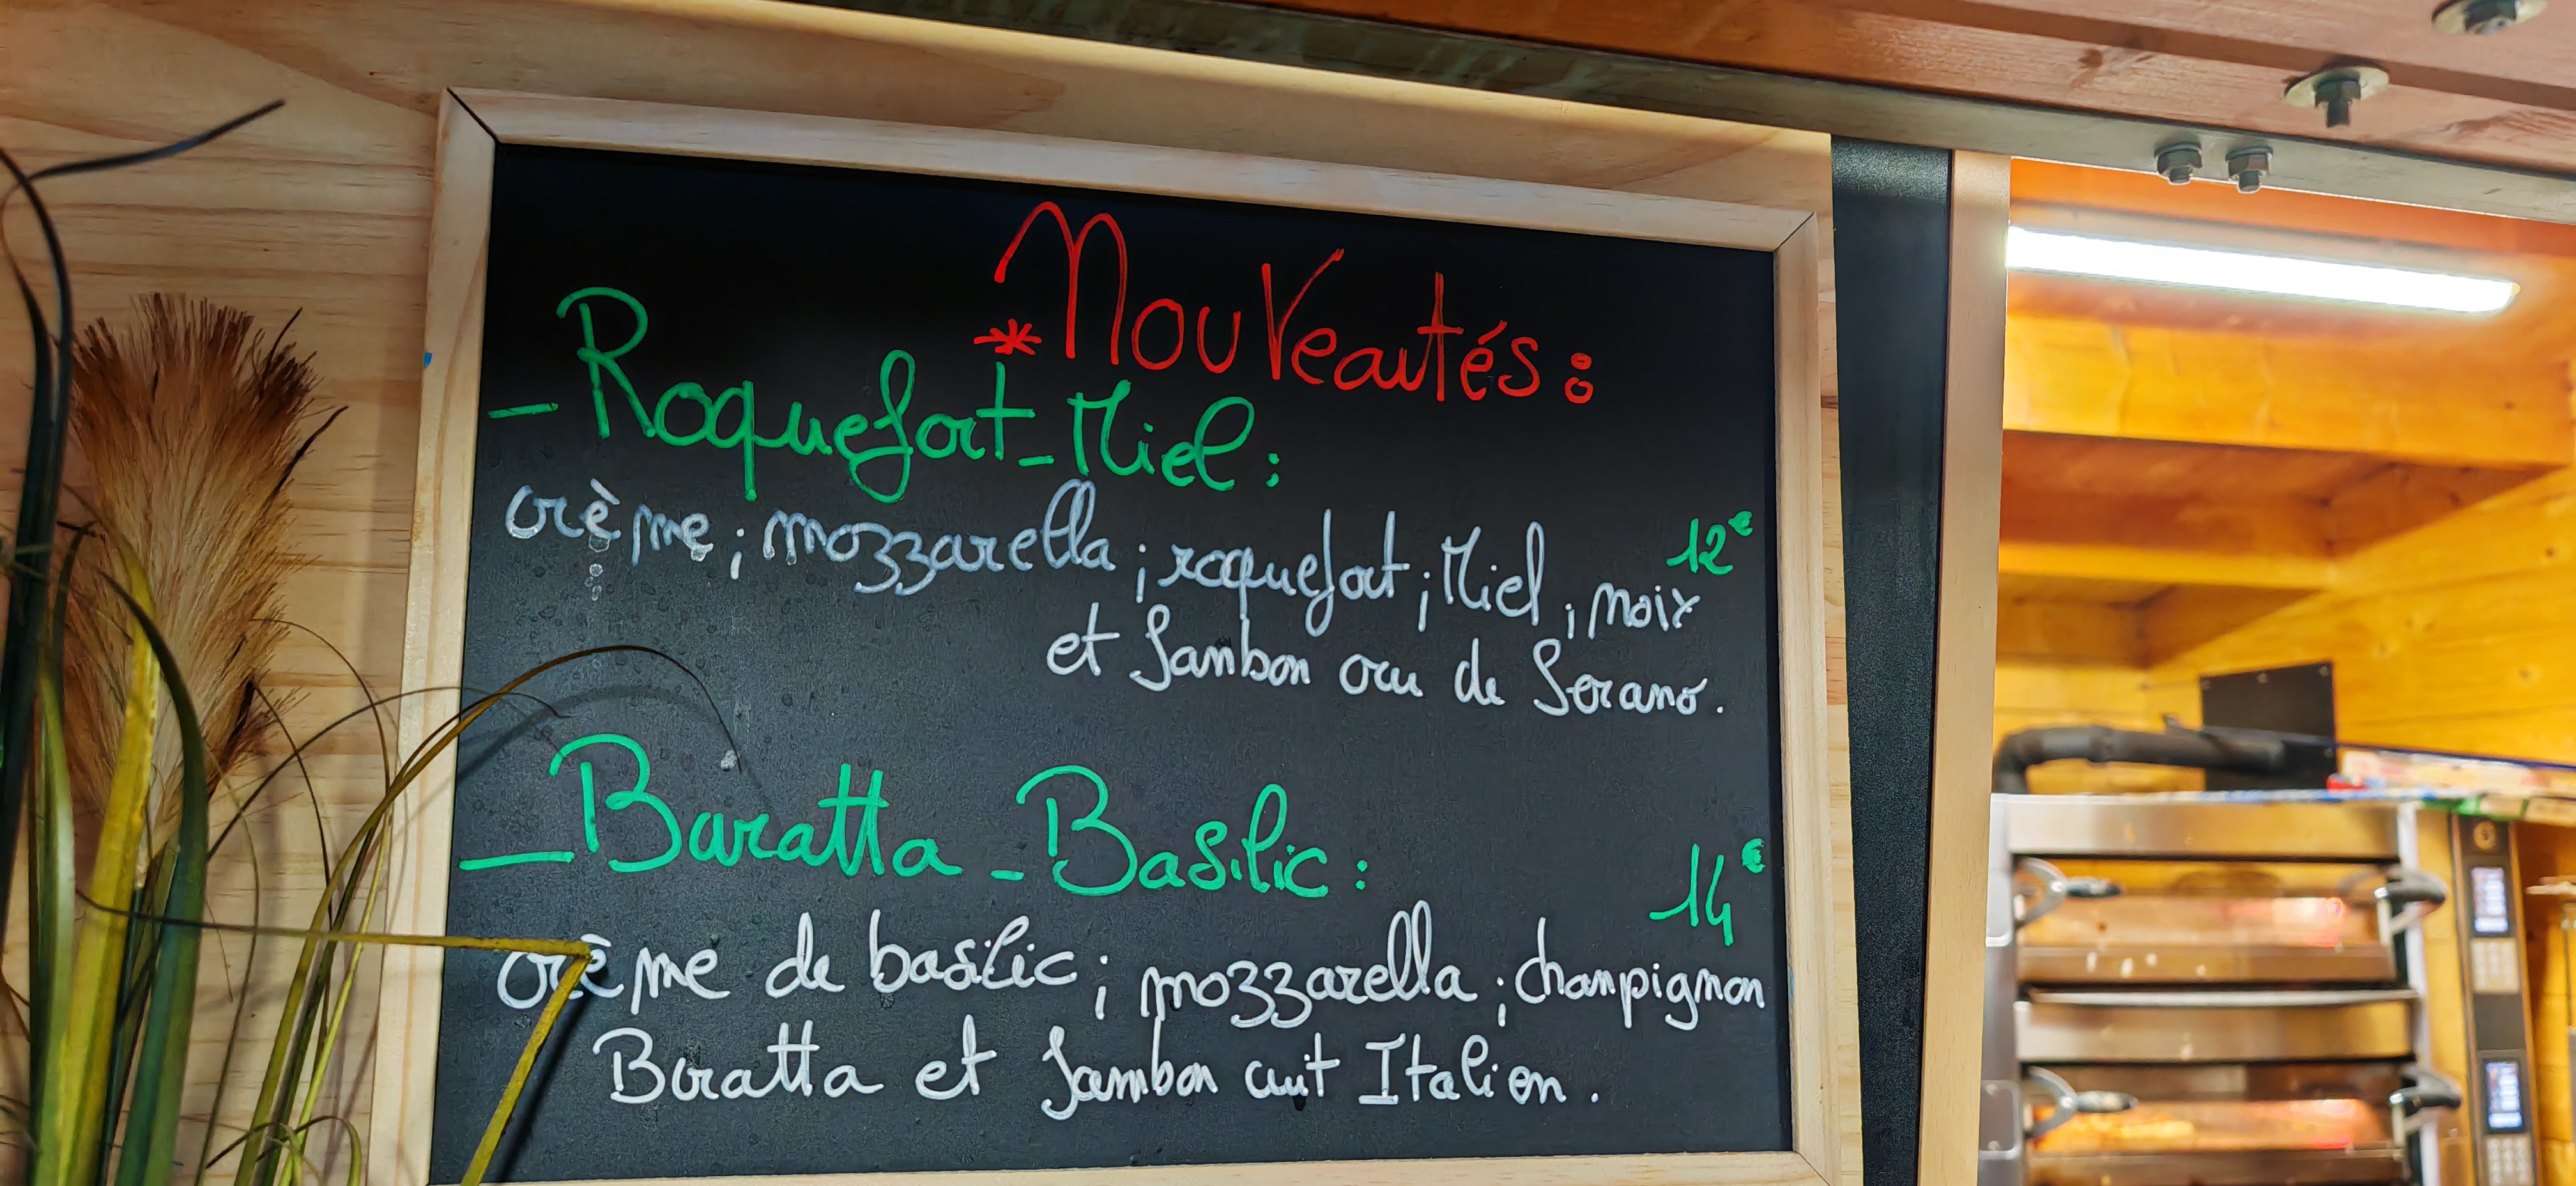 * Nouveautés :
- Roquefort - Miel :
crème ; mozzarella ; roquefort ; Miel ; noix 12€
et Jambon cru de Serano.
- Buratta - Basilic :
14€
crème de basilic ; mozzarella ; champignon
Buratta et Jambon cuit Italien.